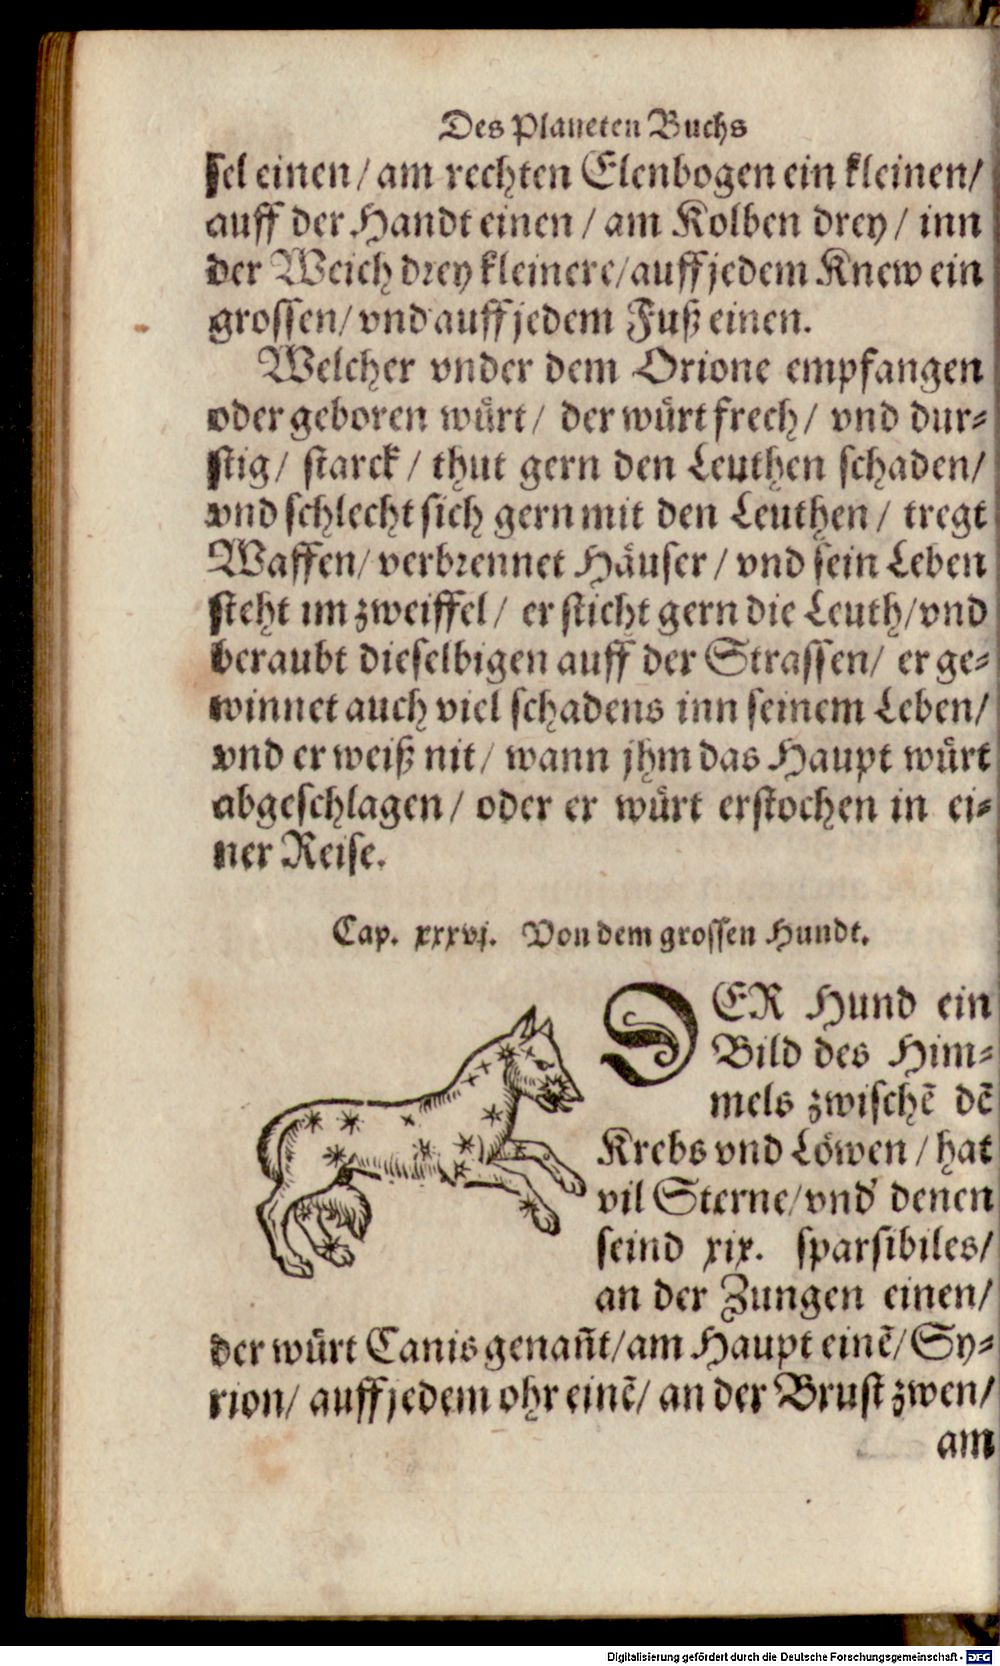 Des Planeten Buchs
sel einen / am rechten Elenbogen ein kleinen /
auff der Handt einen / am Kolben drey / inn
der Weich drey kleinere / auff jedem Knew ein
grossen / vnd auff jedem Fuß einen.
Welcher vnder dem Orione empfangen
oder geboren wuͤrt / der wuͤrt frech / vnd dur⸗
stig / starck / thut gern den Leuthen schaden /
vnd schlecht sich gern mit den Leuthen / tregt
Waffen / verbrennet Haͤuser / vnd sein Leben
steht im zweiffel / er sticht gern die Leuth / vnd
beraubt dieselbigen auff der Strassen / er ge⸗
winnet auch viel schadens inn seinem Leben /
vnd er weiß nit / wann jhm das Haupt wuͤrt
abgeschlagen / oder er wuͤrt erstochen in ei⸗
ner Reise.
Cap. xxxvj. Von dem grossen Hundt.
DER Hund ein
Bild des Him⸗
mels zwischẽ dẽ
Krebs vnd Loͤwen / hat
vil Sterne / vnd denen
seind xix. sparsibiles /
an der Zungen einen /
der wuͤrt Canis genañt / am Haupt einẽ / Sy⸗
rion / auff jedem ohr einẽ / an der Brust zwen /
am
Digitalisierung gefördert durch die Deutsche Forschungsgemeinschaft - DFG